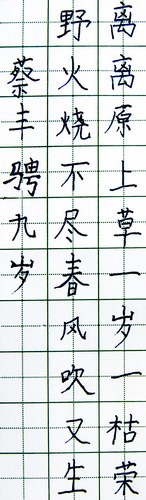 离离原上草一岁一枯荣
野火烧不尽春风吹又生
蔡丰骋九岁